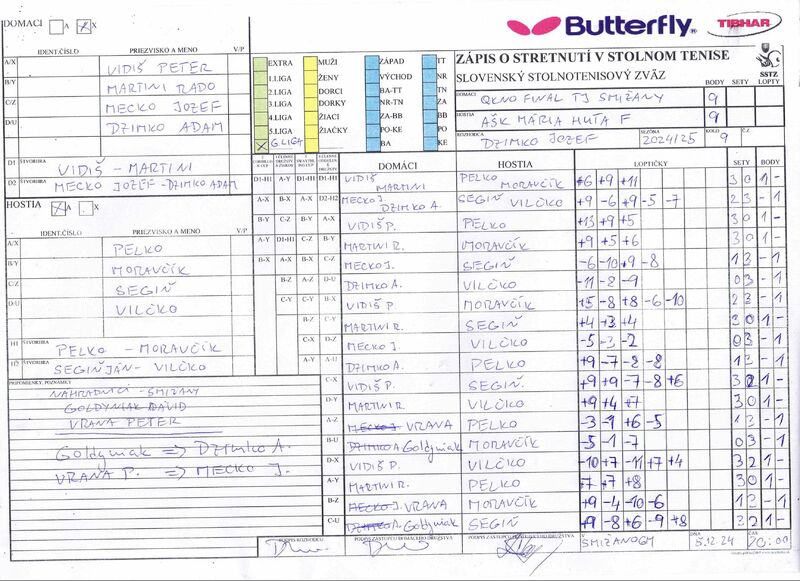 DOMACI A X
IDENT.ČÍSLO PRIEZVISKO A MENO V/P
A/X VIDIŠ PETER
B/Y MARTINI RADO
C/Z MECKO JOZEF
D/U DZIMKO ADAM
D1 ŠTVORHRA VIDIŠ - MARTINI
D2 ŠTVORHRA MECKO JOZEF - DZIMKO ADAM
HOSTIA A X
IDENT.ČÍSLO PRIEZVISKO A MENO V/P
A/X PELKO
B/Y MORAVČÍK
C/Z SEGIŇ
D/U VILČKO
H1 ŠTVORHRA PELKO - MORAVČÍK
H2 ŠTVORHRA SEGIŇ JÁN - VILČKO
PRIPOMIENKY, POZNÁMKY
NÁHRADNÍCI - SMIŽANY
GOLDYNIAK DÁVID
VRANA PETER
Goldyniak => DZIMKO A.
VRANA P. => MECKO J.
Butterfly TIBHAR
EXTRA MUŽI ZÁPAD TT
1.LIGA ŽENY VÝCHOD NR
2.LIGA DORCI BA-TT ZA
3.LIGA DORKY NR-TN
4.LIGA ŽIACI ZA-BB BB
5.LIGA ŽIAČKY PO-KE PO
X 6.LIGA BA KE
ZÁPIS O STRETNUTÍ V STOLNOM TENISE
SLOVENSKÝ STOLNOTENISOVÝ ZVÄZ
SSTZ
BODY SETY LOPTY
DOMACI OKNO FINAL TJ SMIŽANY 9
HOSTIA AŠK MÁRIA HUTA F 9
ROZHODCA DZIMKO JOZEF SEZÓNA 2024/25 KOLO 9 Č.Z.
DOMÁCI HOSTIA LOPTIČKY SETY BODY
D1-H1 A-Y D1-H1 D1-H1 VIDIŠ MARTINI PELKO MORAVČÍK +6 +9 +11 3 0 1 -
A-X B-X A-X D2-H2 MECKO J. DZIMKO A. SEGIŇ VILČKO +9 -6 +9 -5 -7 2 3 - 1
B-Y C-Z B-Y A-X VIDIŠ P. PELKO +13 +9 +5 3 0 1 -
A-Y D1-H1 C-Z B-Y MARTINI R. MORAVČÍK +9 +5 +6 3 0 1 -
B-X A-X B-X C-Z MECKO J. SEGIŇ -6 -10 +9 -8 1 3 - 1
B-Z A-Z D-U DZIMKO A. VILČKO -11 -8 -9 0 3 - 1
C-Y C-Y B-X VIDIŠ P. MORAVČÍK +5 -8 +8 -6 -10 2 3 - 1
B-Z C-Y MARTINI R. SEGIŇ +4 +3 +4 3 0 1 -
C-X D-Z MECKO J. VILČKO -5 -3 -2 0 3 - 1
A-Y A-U DZIMKO A. PELKO +9 -7 -8 -8 1 3 - 1
C-X VIDIŠ P. SEGIŇ +9 +9 -7 -8 +6 3 2 1 -
D-Y MARTINI R. VILČKO +9 +4 +7 3 0 1 -
A-Z MECKO J. VRANA PELKO -3 -9 +6 -5 1 3 - 1
B-U DZIMKO A. Goldyniak MORAVČÍK -5 -1 -7 0 3 - 1
D-X VIDIŠ P. VILČKO -10 +7 -11 +7 +4 3 2 1 -
A-Y MARTINI R. PELKO +7 +7 +8 3 0 1 -
B-Z MECKO J. VRANA MORAVČÍK +9 -4 -10 -6 1 3 - 1
C-U DZIMKO A. Goldyniak SEGIŇ +9 -8 +6 -9 +8 3 2 1 -
PODPIS ROZHODCU PODPIS ZÁSTUPCU DOMÁCEHO DRUŽSTVA V SMIŽANOCH DŇA 5.12.24 ČAS 20:00